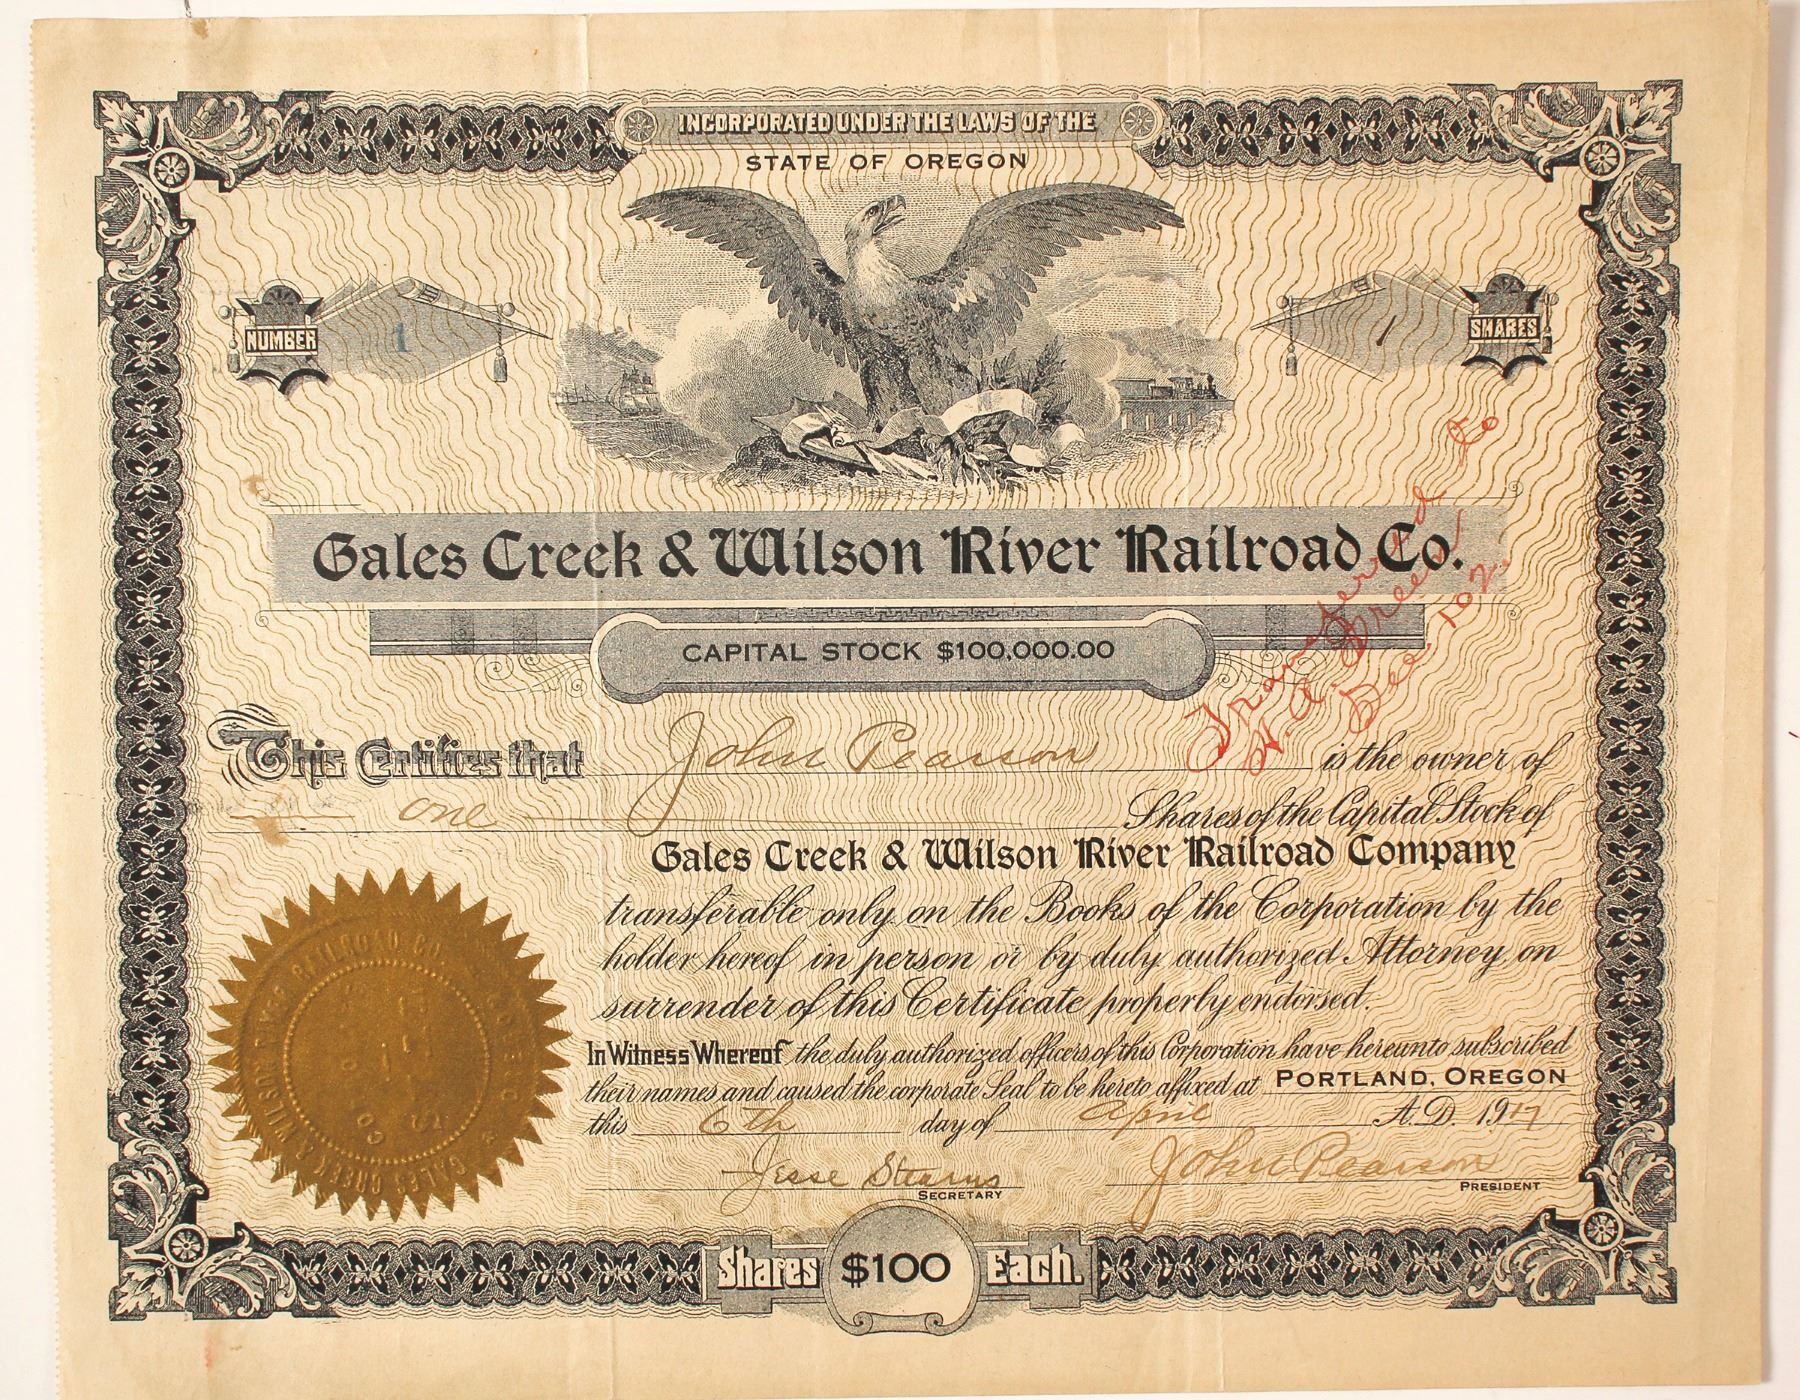 INCORPORATED UNDER THE LAWS OF THE
STATE OF OREGON
NUMBER 1
1 SHARES
Gales Creek & Wilson River Railroad Co.
CAPITAL STOCK $100,000.00
Transferred to
W. A. Dec 10
This Certifies that John Pearson is the owner of
one Shares of the Capital Stock of
Gales Creek & Wilson River Railroad Company
transferable only on the Books of the Corporation by the
holder hereof in person or by duly authorized Attorney on
surrender of this Certificate properly endorsed.
In Witness Whereof the duly authorized officers of this Corporation have hereunto subscribed
their names and caused the corporate Seal to be hereto affixed at PORTLAND, OREGON
this 6th day of April A.D. 1917
Jesse Stearns
SECRETARY
John Pearson
PRESIDENT
GALES CREEK & WILSON RIVER RAILROAD CO.
Shares $100 Each.